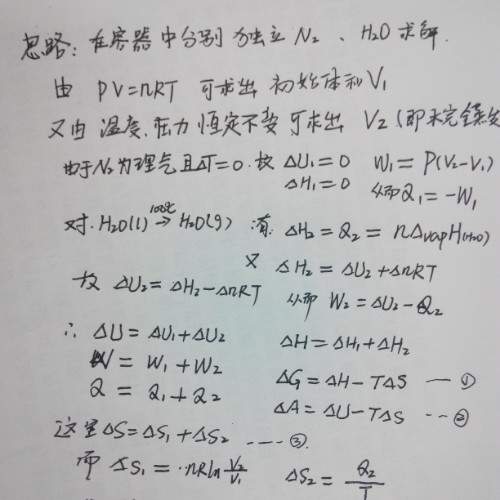 思路：在容器中分别 为独立 N₂、H₂O 求解.
由 PV=nRT 可求出 初始体积V₁
又由 温度.压力 恒定不变 可求出 V₂ (即未完全蒸发
由于N₂为理气且ΔT=0.故 ΔU₁=0 W₁=P(V₂-V₁)
ΔH₁=0 从而Q₁=-W₁
对.H₂O(l) 100℃→ H₂O(g) 有. ΔH₂=Q₂=nΔvapH(H₂O)
又 ΔH₂=ΔU₂+ΔnRT
故 ΔU₂=ΔH₂-ΔnRT 从而 W₂=ΔU₂-Q₂
∴ ΔU=ΔU₁+ΔU₂ ΔH=ΔH₁+ΔH₂
W=W₁+W₂
Q=Q₁+Q₂ ΔG=ΔH-TΔS —①
ΔA=ΔU-TΔS --②
这里ΔS=ΔS₁+ΔS₂ ---③.
而 ΔS₁=nRln V₂/V₁ ΔS₂=Q₂/T